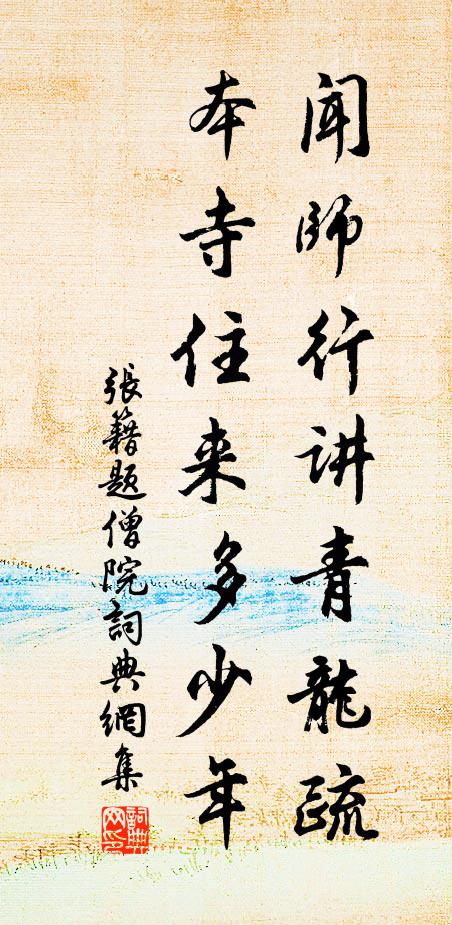 闻師行讲青龍疏
本寺住来多少年
張籍題僧院詞典網集
詞典网